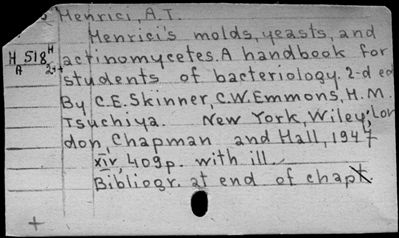 Henrici, A.T.
Henrici's molds, yeasts, and
H 518 H actinomycetes. A handbook for
A 2++ students of bacteriology. 2-d ed
By C.E. Skinner, C.W. Emmons, H.M.
Tsuchiya. New York, Wiley; Lon
don, Chapman and Hall, 1947
xiv, 409p. with ill.
Bibliogr. at end of chapt
+